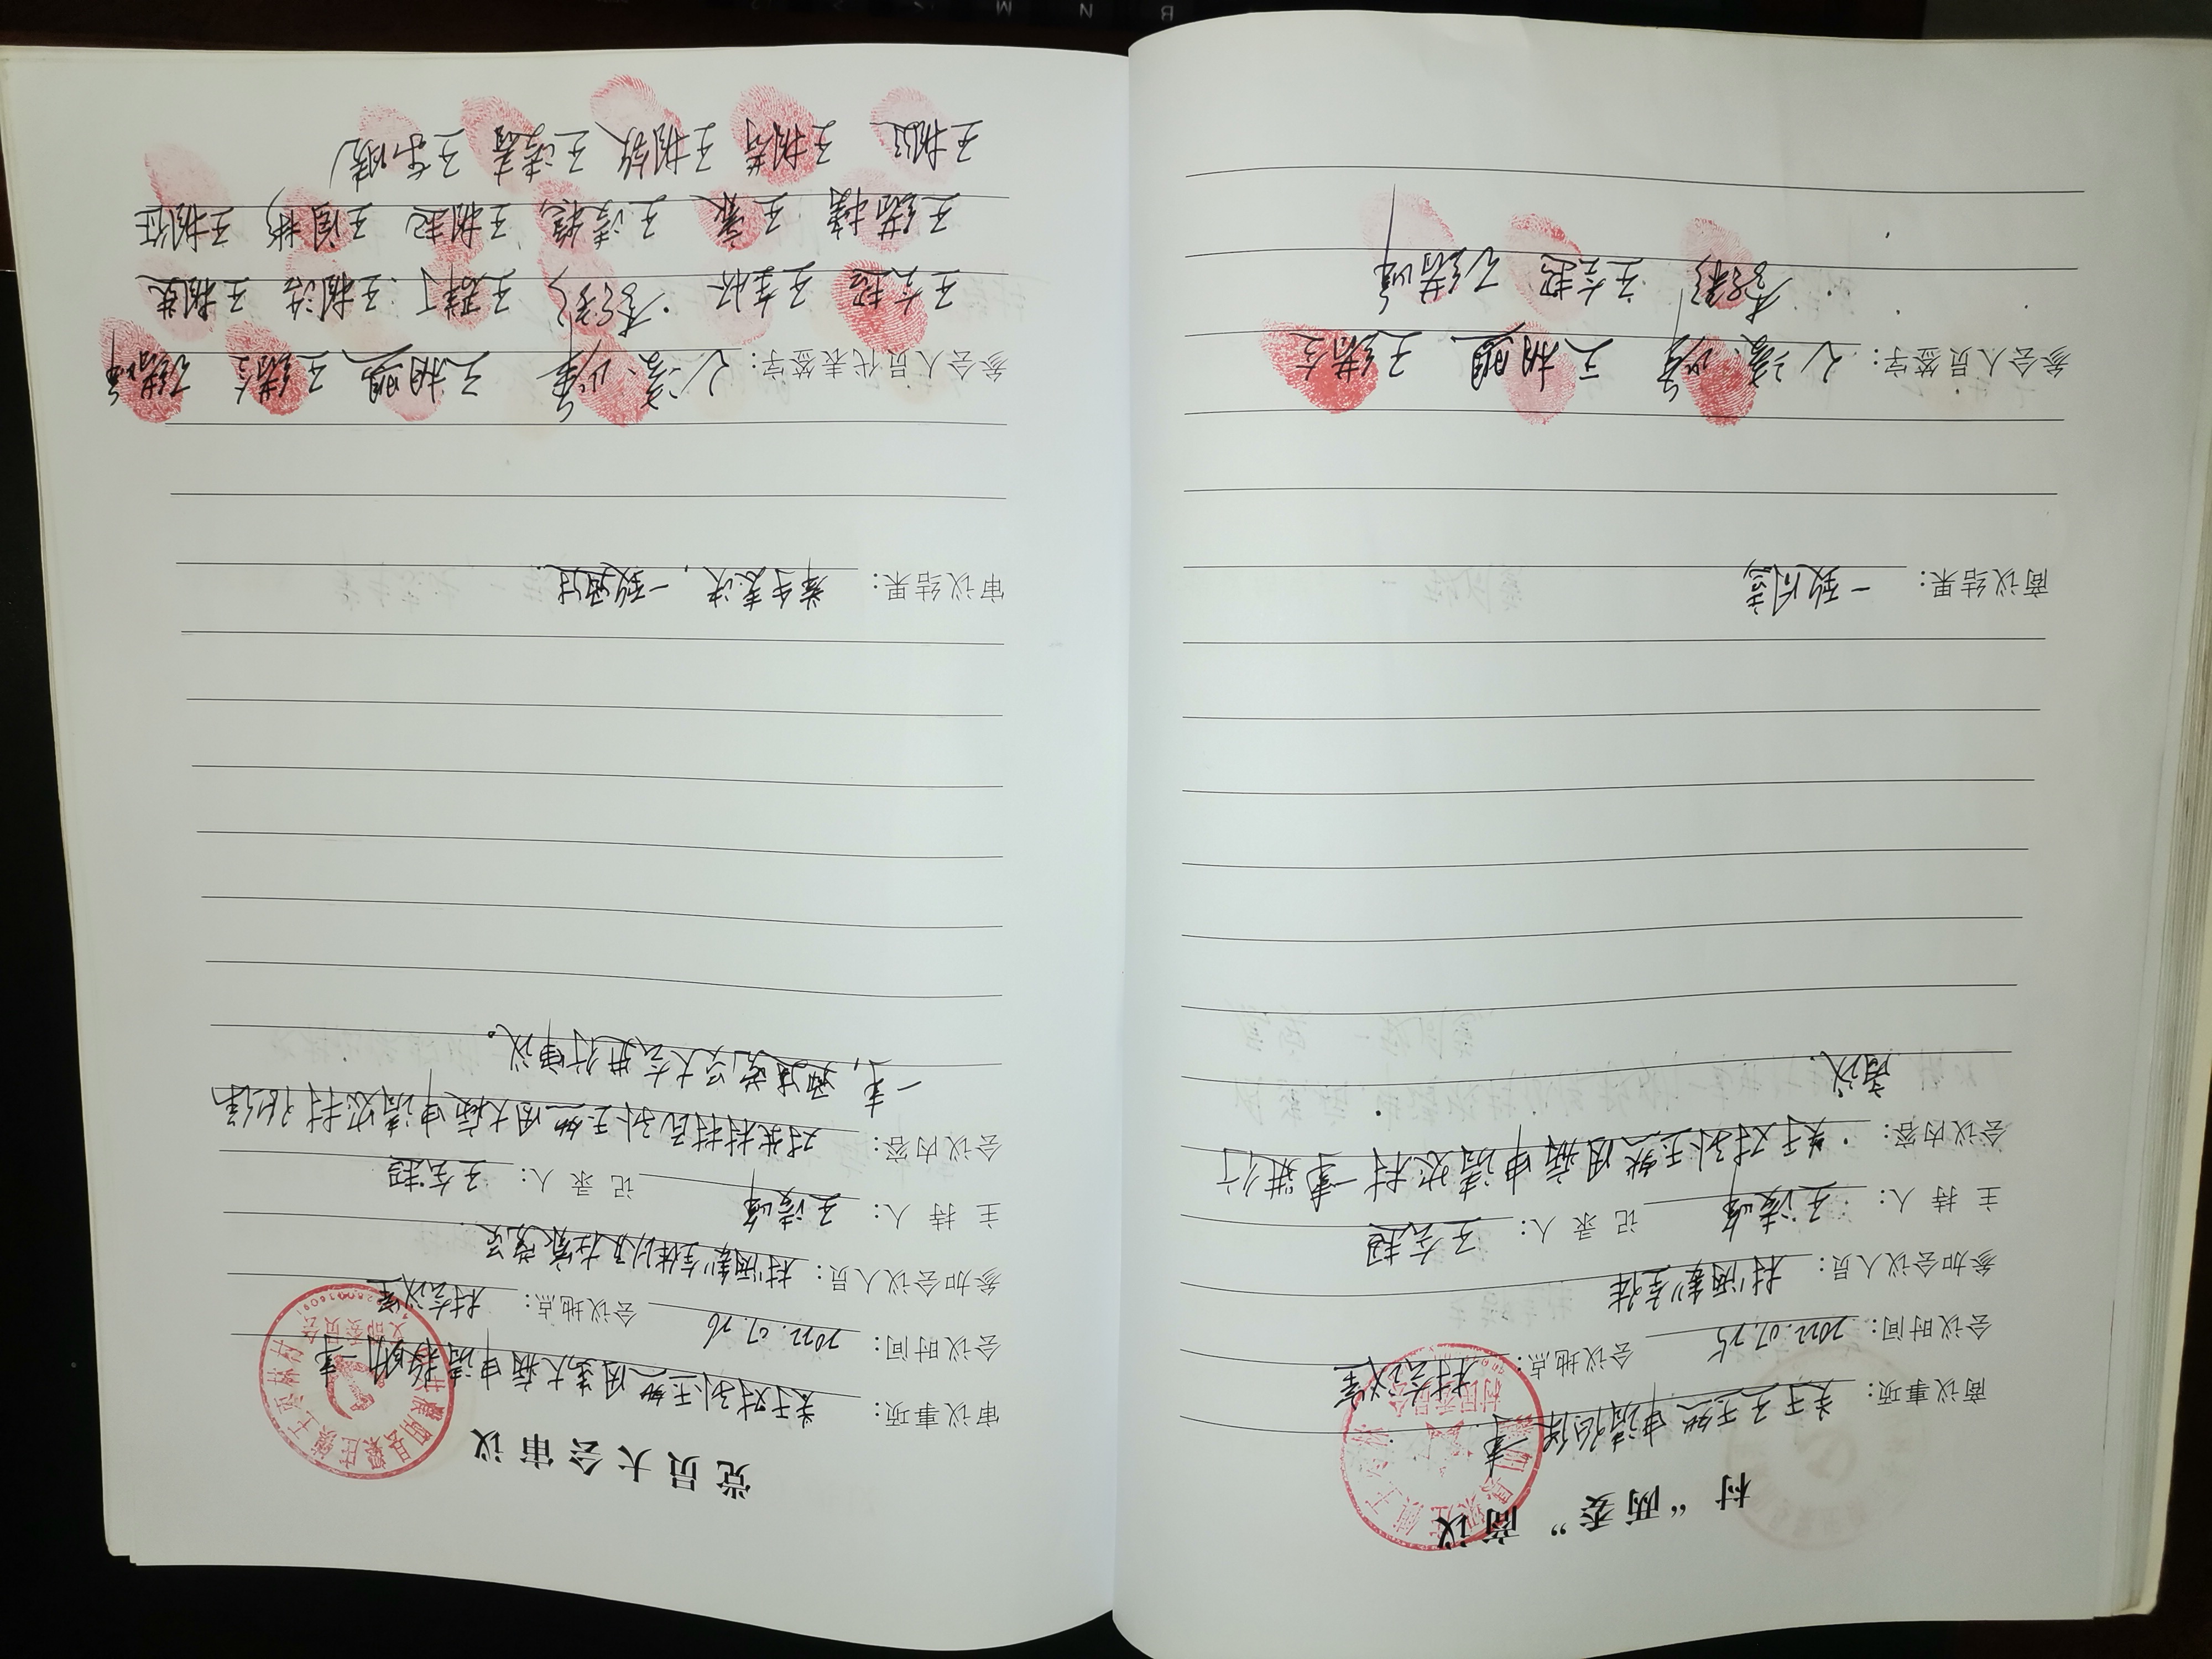 村“两委”商议
商议事项: 关于王玉然申请低保一事.
会议时间: 2022.07.25 会议地点: 村会议室
参加会议人员: 村“两委”全体
主 持 人: 王凌峰 记 录 人: 王会超
会议内容: 关于对孙玉然因病申请农村一事进行
商议.
商议结果: 一致同意
参会人员签字: 王凌峰 王相盟 王绪令
李彩 王会超 王绪峰
村民委员会
党员大会审议
审议事项: 关于对孙玉然因患大病申请救助一事
会议时间: 2022.07.26 会议地点: 村会议室
参加会议人员: 村“两委”全体以及在家党员.
主 持 人: 王凌峰 记 录 人: 王会超
会议内容: 对我村村民孙玉然因大病申请农村低保
一事,通过党员大会进行审议。
审议结果: 举手表决,一致通过.
参会人员代表签字: 王凌峰 王相盟 王绪令 王绪峰
王会超 王金怀 李彩 王群丁 王相浩 王相选
王绪榜 王豪 王凌稳 王相起 王国彬 王相征
王相廷 王相荐 王相钦 王凌春 王东晓
濮阳县梁庄镇王
支部委员会